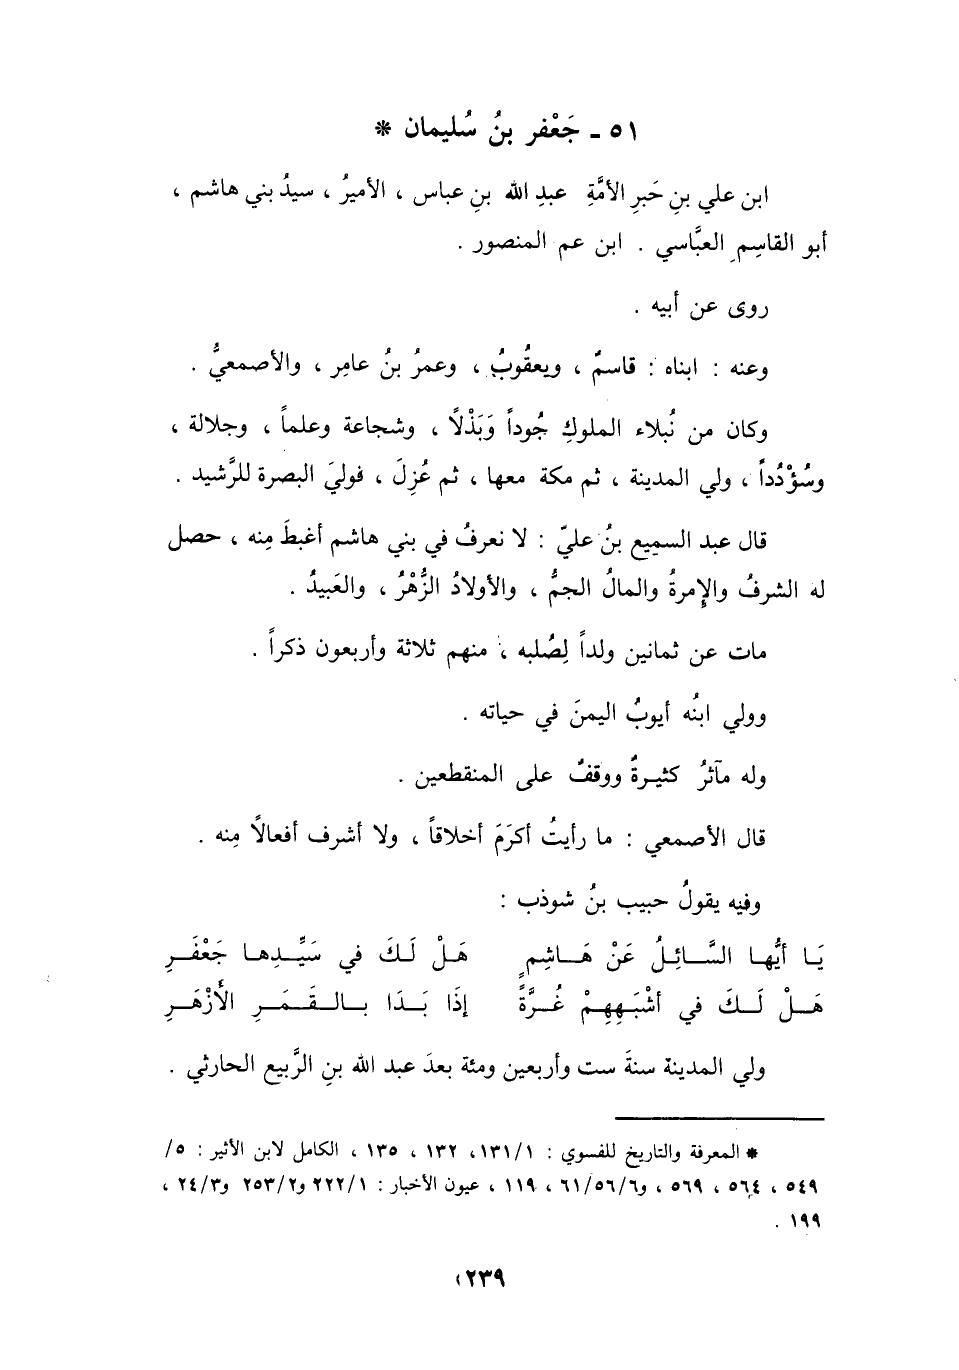 ٥١ ـ جَعْفر بنُ سُليمان *
ابن علي بنِ حَبرِ الأمَّةِ عبدِ الله بنِ عباس ، الأميرُ ، سيدُ بني هاشم ،
أبو القاسِمِ العبَّاسي . ابن عم المنصور .
روى عن أبيه .
وعنه : ابناه : قاسمٌ ، ويعقوبُ ، وعمرُ بنُ عامِر ، والأصمعيُّ .
وكان من نُبلاء الملوكِ جُوداً وَبَذْلًا ، وشجاعة وعلماً ، وجلالة ،
وسُؤْدُداً ، ولي المدينة ، ثم مكة معها ، ثم عُزِلَ ، فوليَ البصرة للرَّشيد .
قال عبد السميع بنُ عليّ : لا نعرفُ في بني هاشم أغبطَ مِنه ، حصل
له الشرفُ والإمرةُ والمالُ الجمُّ ، والأولادُ الزُّهْرُ ، والعَبيدُ .
مات عن ثمانين ولداً لِصُلبه ، منهم ثلاثة وأربعون ذكراً .
وولي ابنُه أيوبُ اليمنَ في حياته .
وله مآثرُ كثيرةٌ ووقفٌ على المنقطعين .
قال الأصمعي : ما رأيتُ أكرَمَ أخلاقاً ، ولا أشرف أفعالاً مِنه .
وفيه يقولُ حبيب بنُ شوذب :
يَـا أيُّهـا السَّـائِـلُ عَنْ هَـاشِمٍ هَلْ لَـكَ في سَيِّـدِهـا جَعْفَـرِ
هَـلْ لَـكَ في أشْبَهِهِمْ غُـرَّةً إذَا بَـدَا بـالـقَـمَـرِ الأزْهَـرِ
ولي المدينة سنةَ ست وأربعين ومئة بعدَ عبد الله بنِ الرَّبيع الحارثي .
* المعرفة والتاريخ للفسوي : ١٣١/١، ١٣٢ ، ١٣٥ ، الكامل لابن الأثير : ٥/
٥٤٩ ، ٥٦٤ ، ٥٦٩ ، و٦/٥٦/٦١ ، ١١٩ ، عيون الأخبار : ٢٢٢/١ و٢٥٣/٢ و٢٤/٣ ،
١٩٩ .
٢٣٩